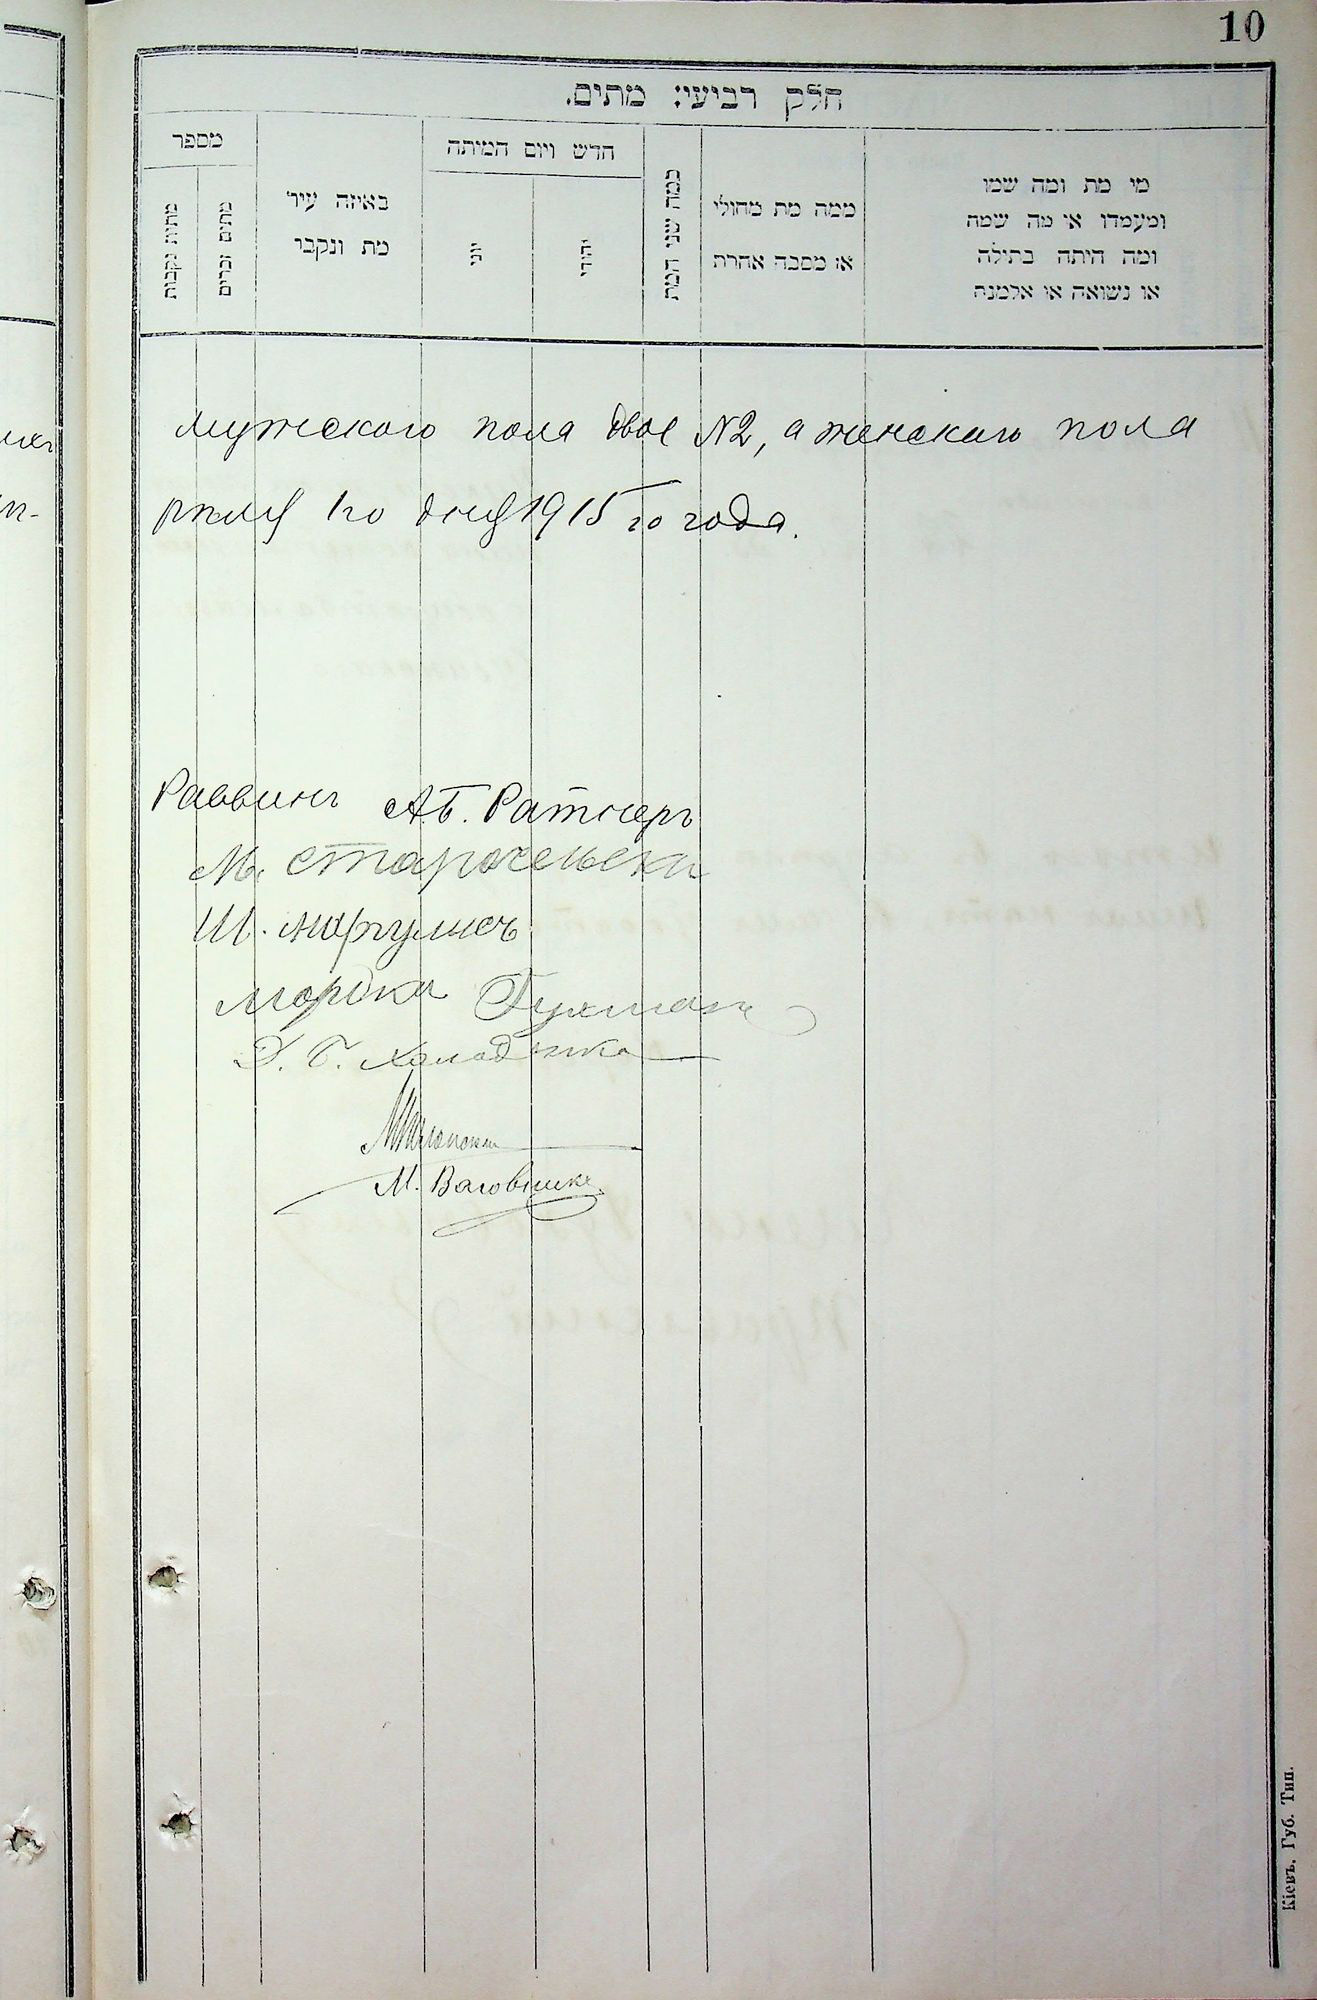 10
חלק רביעי: מתים.
מי מת ומה שמו
ומעמדו או מה שמה
ומה היתה בתולה
או נשואה או אלמנה
ממה מת מחולי
או מסבה אחרת
כמה שני המת
חדש ויום המיתה
יהודי
יוני
באיזה עיר
מת ונקבר
מספר
מתים זכרים
מתות נקבות
мужского пола двое №2, а женского пола
1го 1915 го года.
Раввинъ А.Б. Ратнеръ
М.
Ш. Маргулисъ
Мордка Гухманъ
Холоденко
М.
Кіевъ, Губ. Тип.